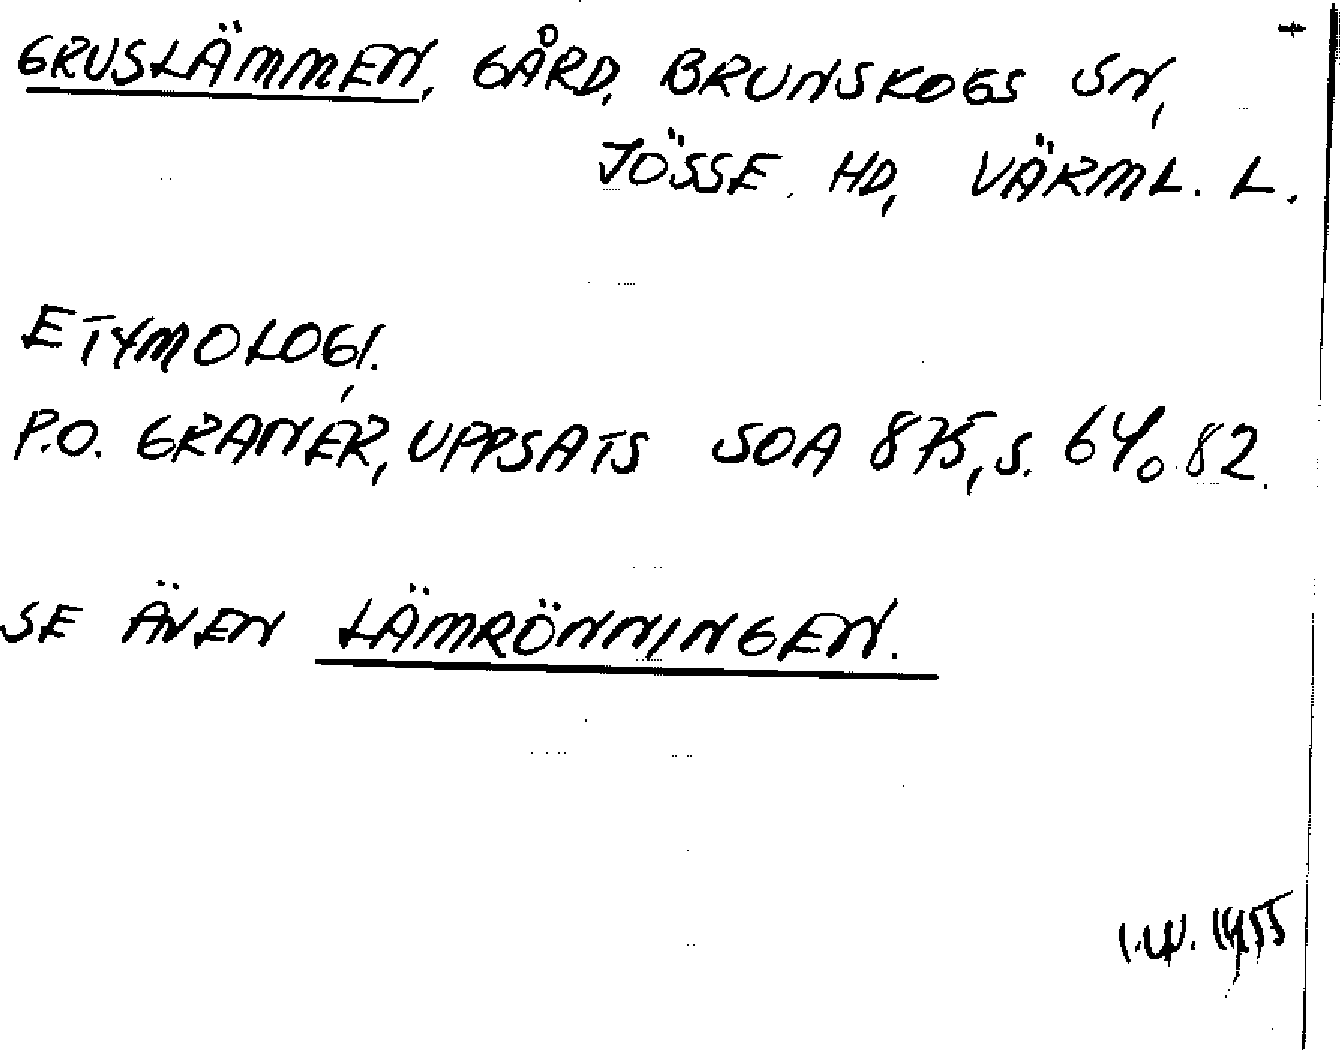 +
GRUSLÄMMEN, GÅRD, BRUNSKOGS SN,
JÖSSE HD, VÄRML. L.
ETYMOLOGI.
P.O. GRANÉR, UPPSATS SOA 875, S. 64 o 82.
SE ÄVEN LÄMRÖNNINGEN.
1955